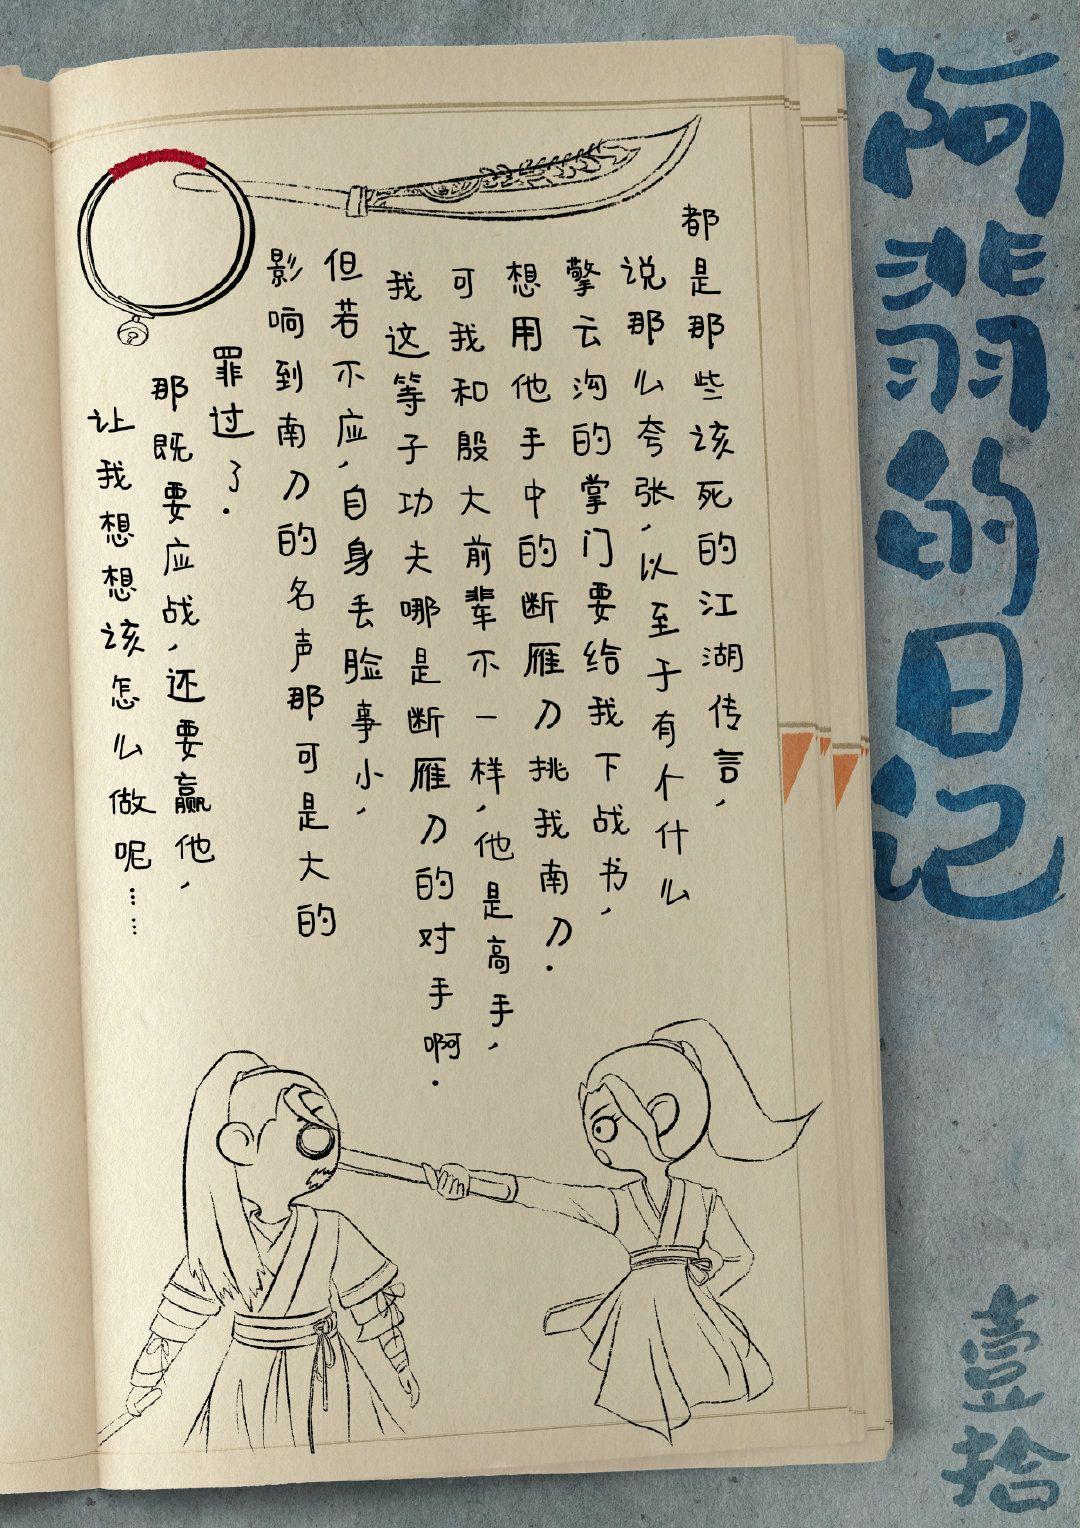 阿翡的日记
都是那些该死的江湖传言,
说那么夸张,以至于有个什么
擎云沟的掌门要给我下战书,
想用他手中的断雁刀挑我南刀.
可我和殷大前辈不一样,他是高手,
我这等子功夫哪是断雁刀的对手啊.
但若不应,自身丢脸事小,
影响到南刀的名声那可是大的
罪过了.
那既要应战,还要赢他,
让我想想该怎么做呢……
壹拾